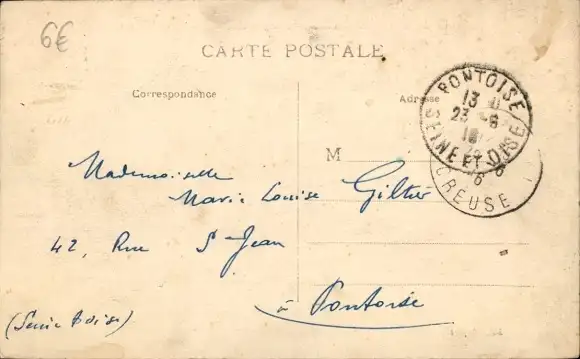 6€
CARTE POSTALE
Correspondance
Adresse
PONTOISE
13
23 - 8
SEINE ET OISE
CREUSE
M
Mademoiselle
Marie Louise Giltier
42, Rue St Jean
à Pontoise
(Seine & Oise)